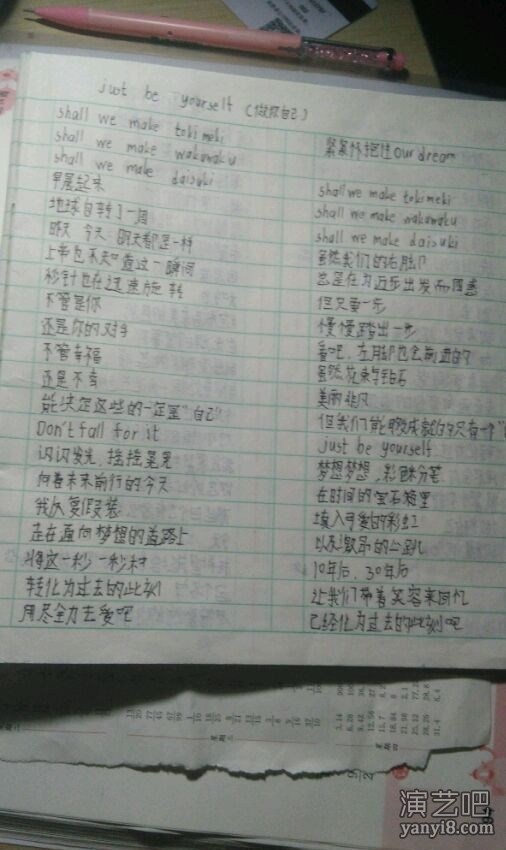 just be yourself (做好自己)
shall we make tokimeki
shall we make wakuwaku
shall we make daisuki
早晨起来
地球自转了一周
昨天 今天 明天都是一样
上帝也不知道这一瞬间
秒针也在迅速旋转
不管是你
还是你的对手
不管幸福
还是不幸
能决定这些的一定是"自己"
Don't fall for it
闪闪发光，摇摇晃晃
向着未来前行的今天
我从复假装
走在通向梦想的道路上
将这一秒一秒和
转化为过去的此刻
用尽全力去爱吧
紧紧怀抱住our dream
shall we make tokimeki
shall we make wakuwaku
shall we make daisuki
虽然我们的右脚
总是在为近步出发而困惑
但只要一步
慢慢踏出一步
看吧，左脚也会前进的
虽然花束与钻石
美丽非凡
但我们能够成就的只有一个"
just be yourself
梦想梦想，彩色粉笔
在时间的宝石箱里
填入可爱的彩虹
以及激昂的心跳
10年后，30年后
让我们带着笑容来回忆
已经化为过去的此刻吧
星期三
星期四
演艺吧
yanyi8.com